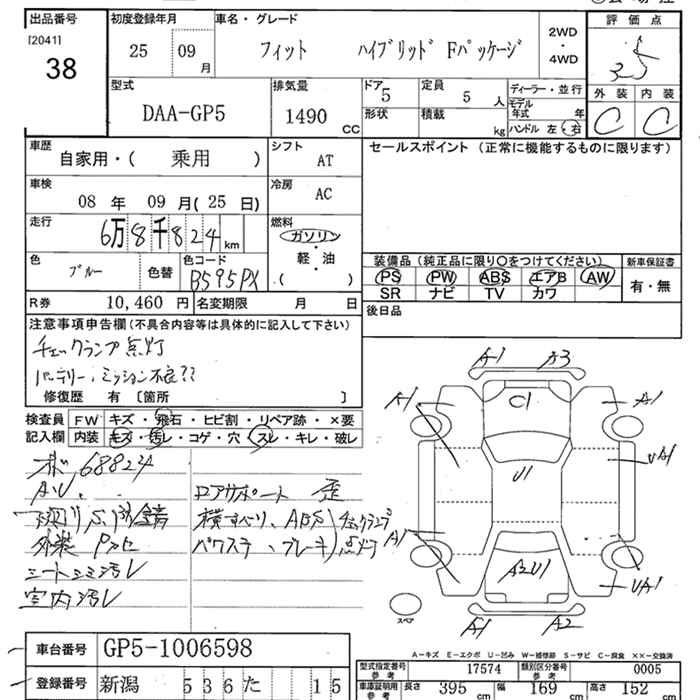 出品番号 初度登録年月 車名・グレード 評価点
[2041] 38
25 09月 フィット ハイブリッド Fパッケージ 2WD・4WD 3.5
型式 排気量 ドア 5 定員 5人 ディーラー・並行 外装 内装
DAA-GP5 1490 CC 形状 積載 kg モデル年式 年 C C
ハンドル 左・右
車歴 自家用・( 乗用 ) シフト AT セールスポイント (正常に機能するものに限ります)
車検 08年 09月(25日) 冷房 AC
走行 6万8千824 km 燃料 ガソリン
軽・油
( )
色 ブルー 色替 色コード B595PX
装備品 (純正品に限り〇をつけてください) 新車保証書
PS PW ABS エアB AW 有・無
SR ナビ TV カワ
R券 10,460円 名変期限 月 日 後日品
注意事項申告欄 (不具合内容等は具体的に記入して下さい)
チェックランプ点灯
バッテリー、ミッション不良??
修復歴 有 [箇所 ]
検査員 FW キズ・飛石・ヒビ割・リペア跡・×要
記入欄 内装 キズ・汚レ・コゲ・穴・スレ・キレ・破レ
68824
A.U.
ロアサポート 歪
横すべり、ABS チェックランプ
パワステ、ブレーキ 点灯
シートシミ汚レ
室内汚レ
A1 A3
A1 C1 A1
U1 UA1
A1
A2U1 UA1
A1 A2
スペア
A-キズ E-エクボ U-凹み W-補修跡 S-サビ C-腐食 ××-交換済
車台番号 GP5-1006598
登録番号 新潟 536 た 15
型式指定番号 参考 17574 類別区分番号 参考 0005
車庫証明用 参考 長さ 395cm 幅 169cm 高さ 152cm